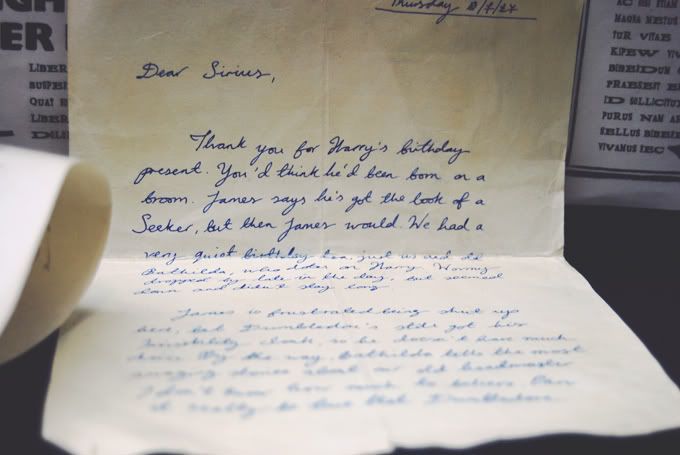 Thursday
Dear Sirius,
Thank you for Harry's birthday
present. You'd think he'd been born on a
broom. James says he's got the book of a
Seeker, but then James would. We had a
very quiet birthday tea, just us and old
Bathilda, who dotes on Harry. Wormy
dropped by late in the day, but seemed
down and didn't stay long
James is frustrated being shut up
here, but Dumbledore's still got his
Invisibility cloak, so he doesn't have much
By the way, Bathilda tells the most
amazing stories about our old headmaster
I don't know how much to believe. Can
it really be true that Dumbledore
ER
LIBER
LIBER
MAGNA
TUR VITAE
PURUS NAM